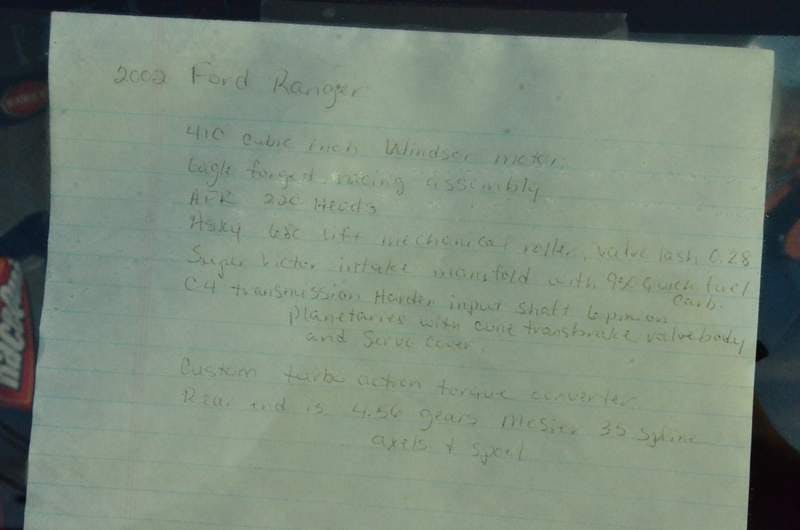 2002 Ford Ranger
410 cubic inch Windser motor.
Eagle forged racing assembly
AFR 220 Heads
lift mechanical roller, valve lash 0.28
Super Victor intake manifold with 950 Quick fuel
Carb.
C4 transmission Harder input shaft 6 pinion
planetaries with transbrake valvebody
and Servo cover.
Custom turbo action torque converter.
Rear end is 4.56 gears 35 spline
axels & Spool